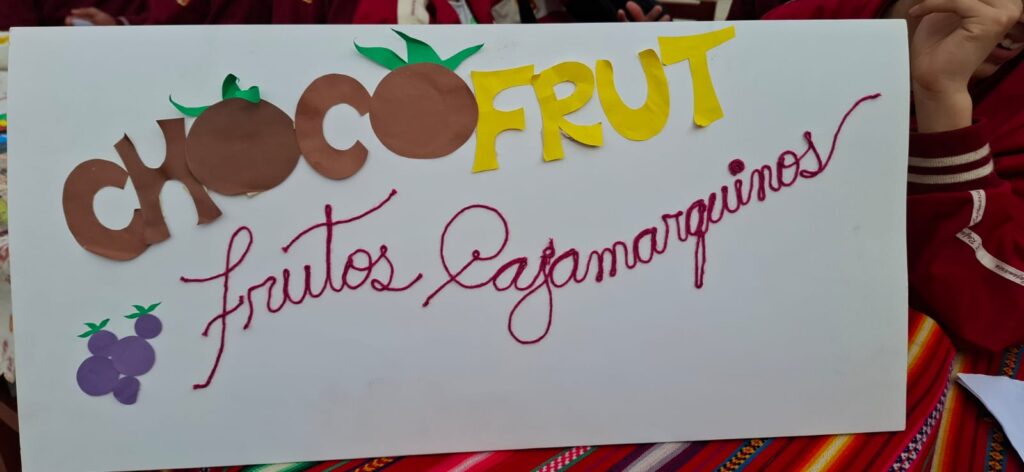 CHOCOFRUT
frutos Cajamarquinos